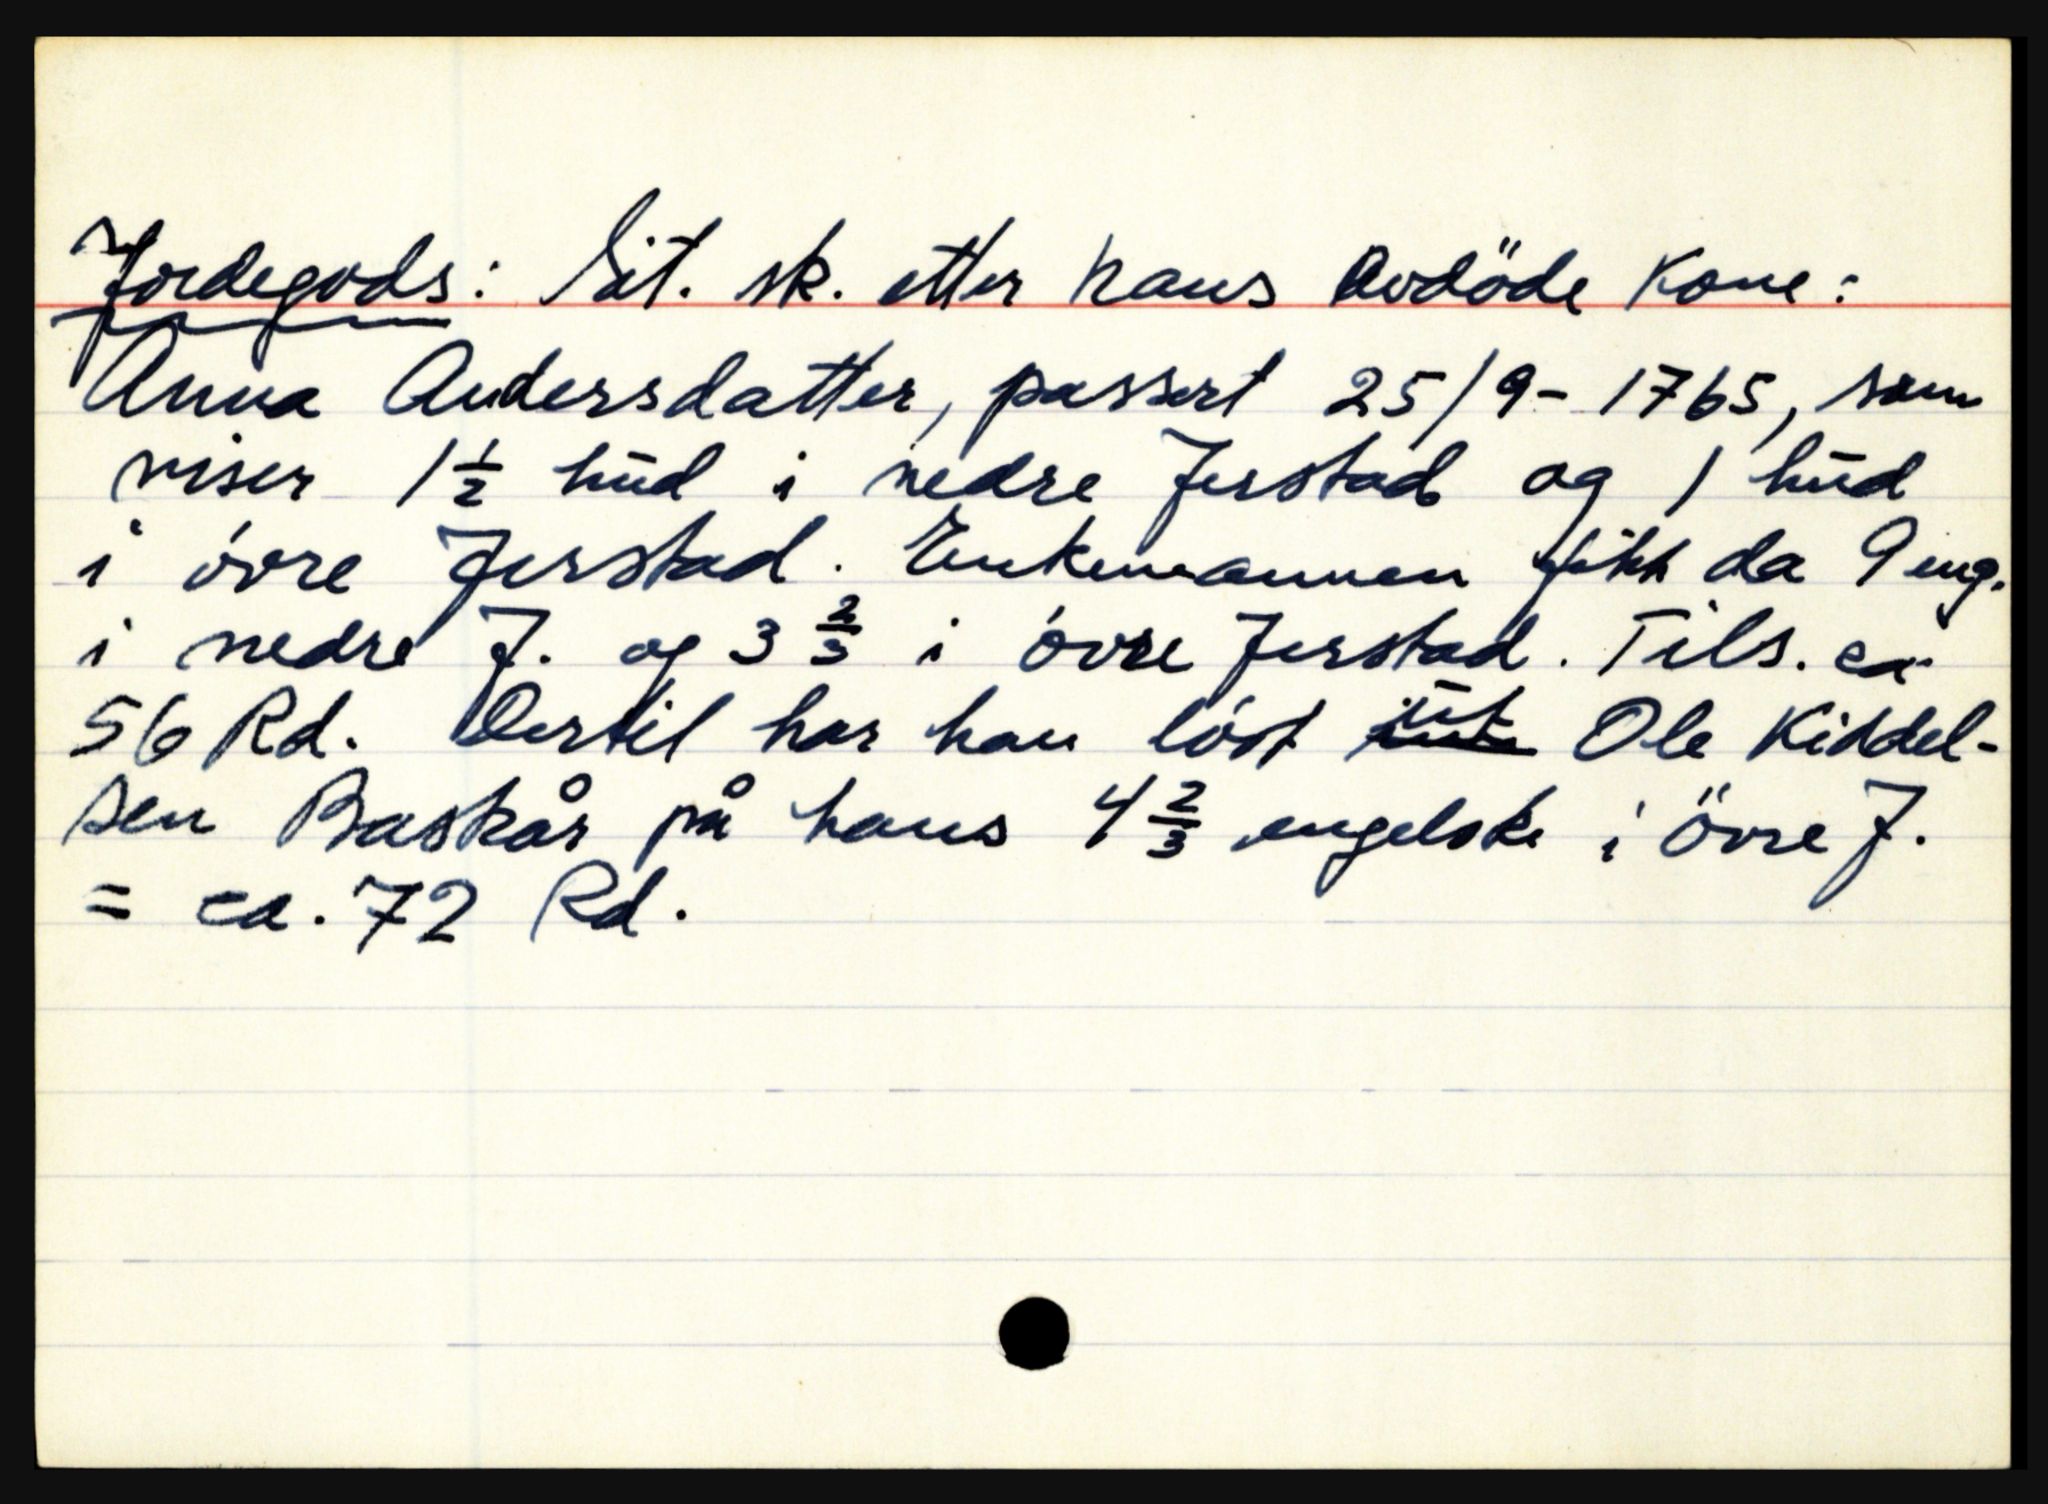 Jordegods: Lit. sk. etter hans avdöde kone:
Anna Andersdatter, passert 25/9-1765, som
viser 1 1/2 hud i nedre Jerstad og 1 hud
i övre Jerstad. Enkemannen fikk da 9 eng.
i nedre J. og 3 2/3 i övre Jerstad. Tils. ca
56 Rd. Dertil har han löst ut Ole Kiddel-
sen Baskår på hans 4 2/3 engelske i Övre J.
= ca. 72 Rd.